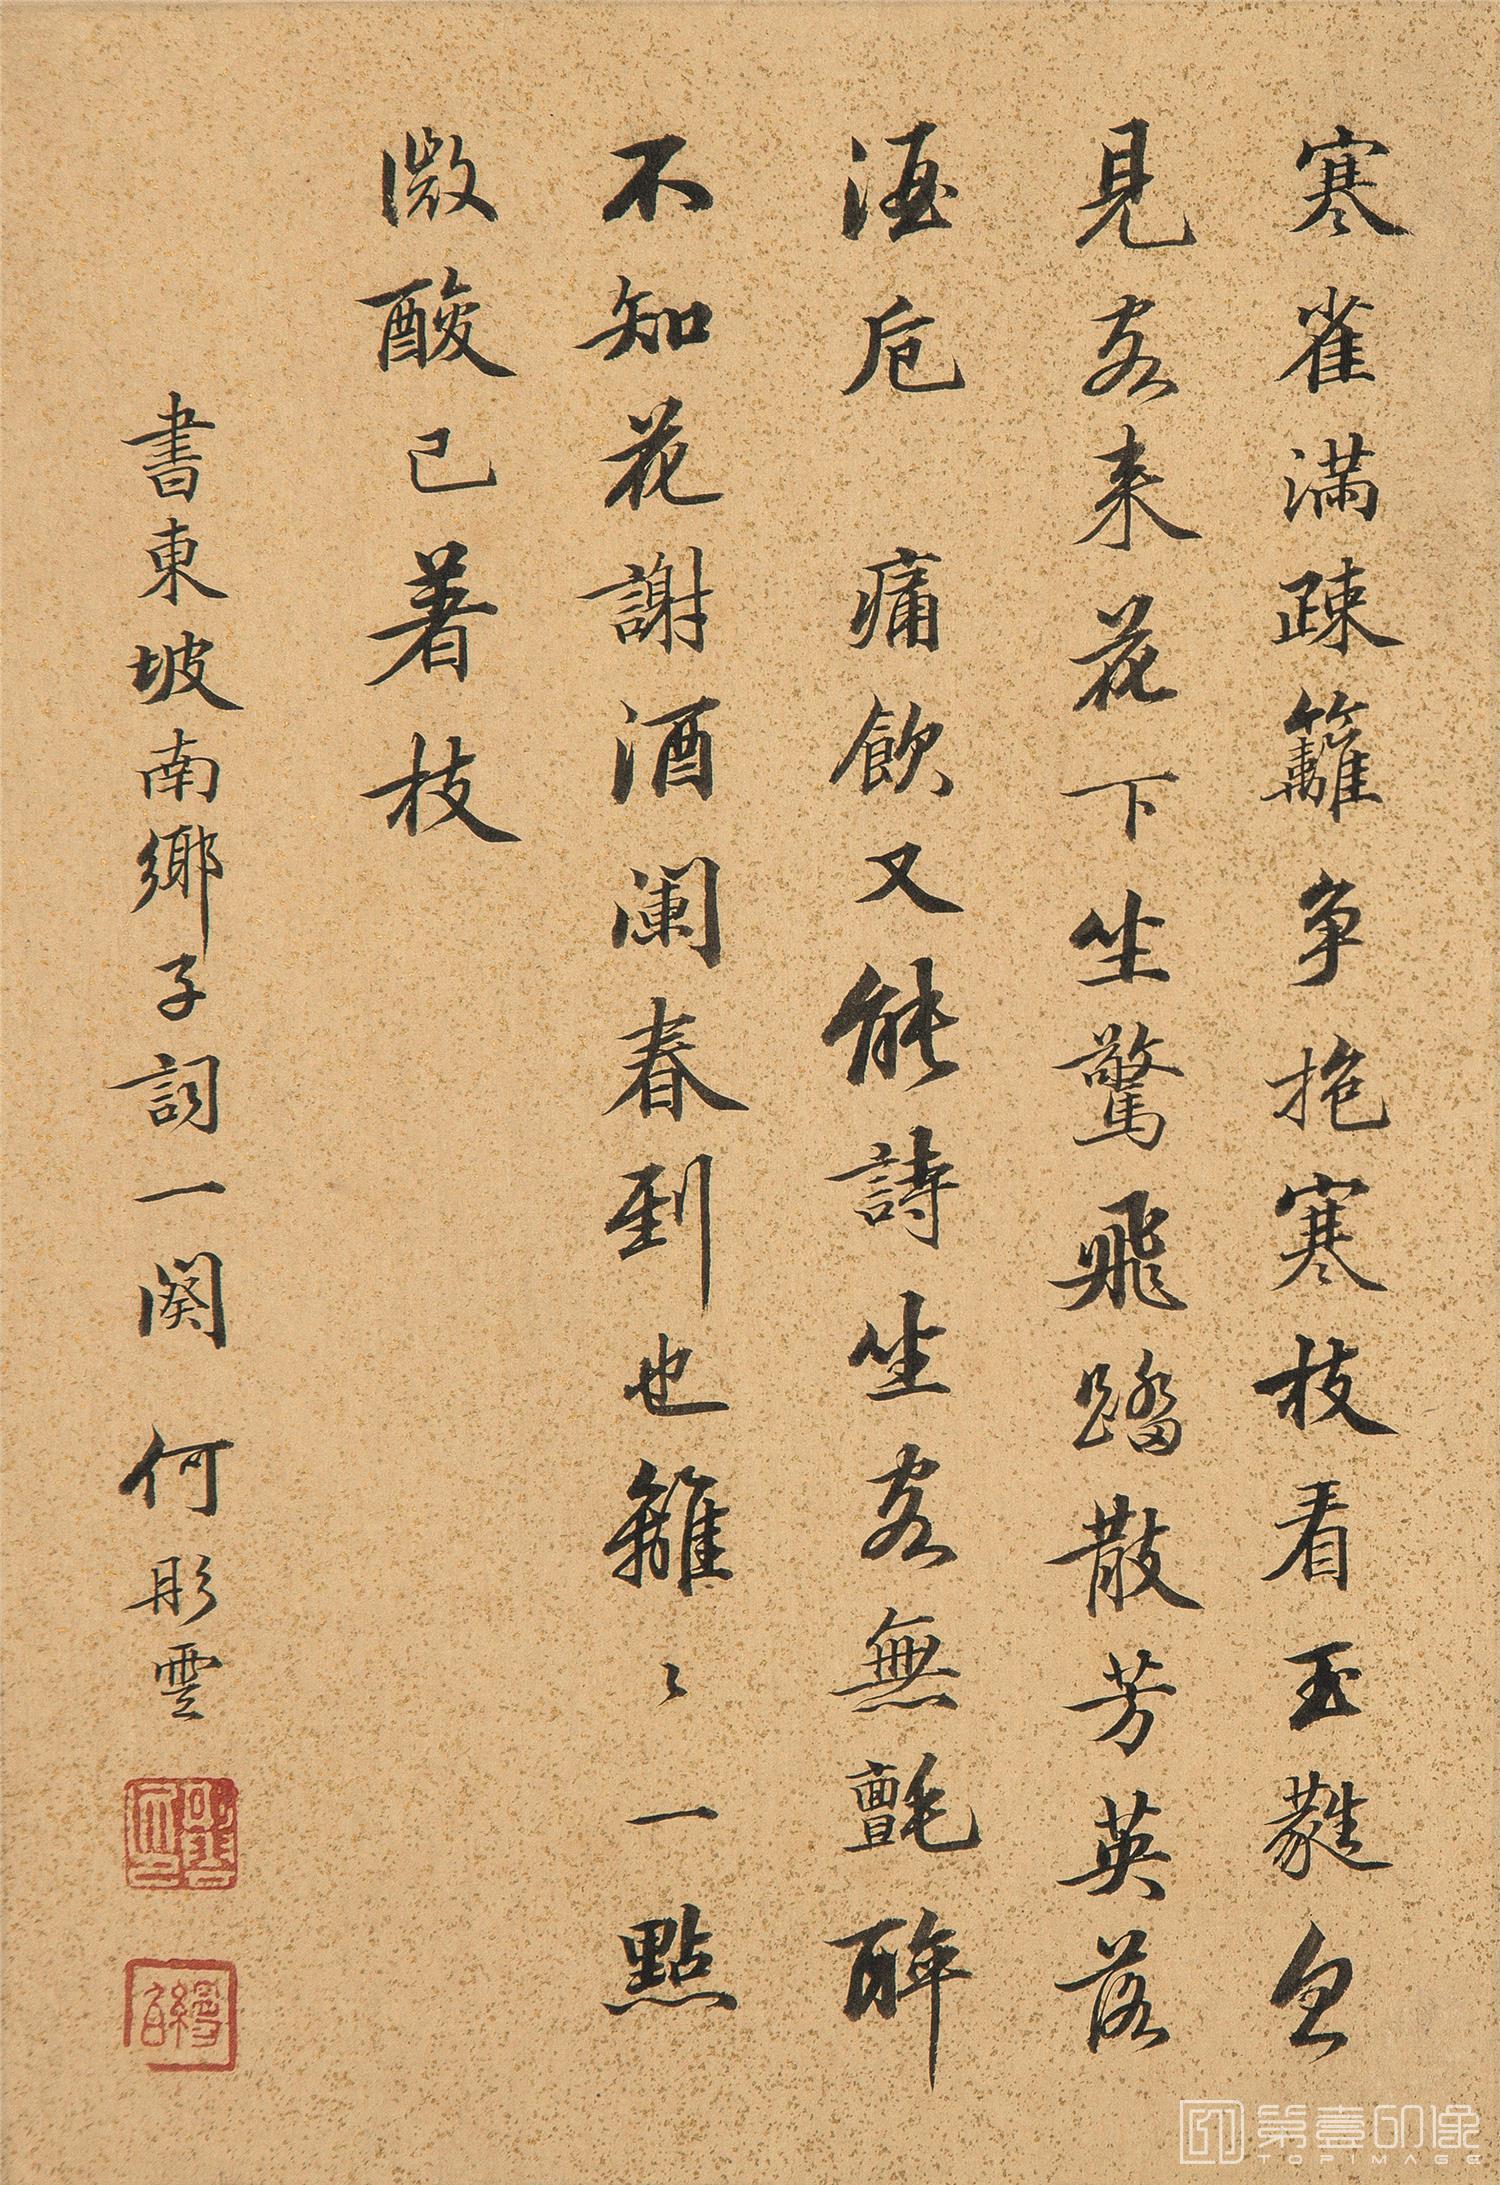 寒雀滿疎籬争抱寒枝看玉蕤忽
見客来花下坐驚飛踏散芳英落
酒卮 痛飲又能詩坐客無氈醉
不知花謝酒闌春到也離〻一點
微酸已著枝
書東坡南鄉子詞一闋 何彤雲
第壹印像
TOPIMAGE